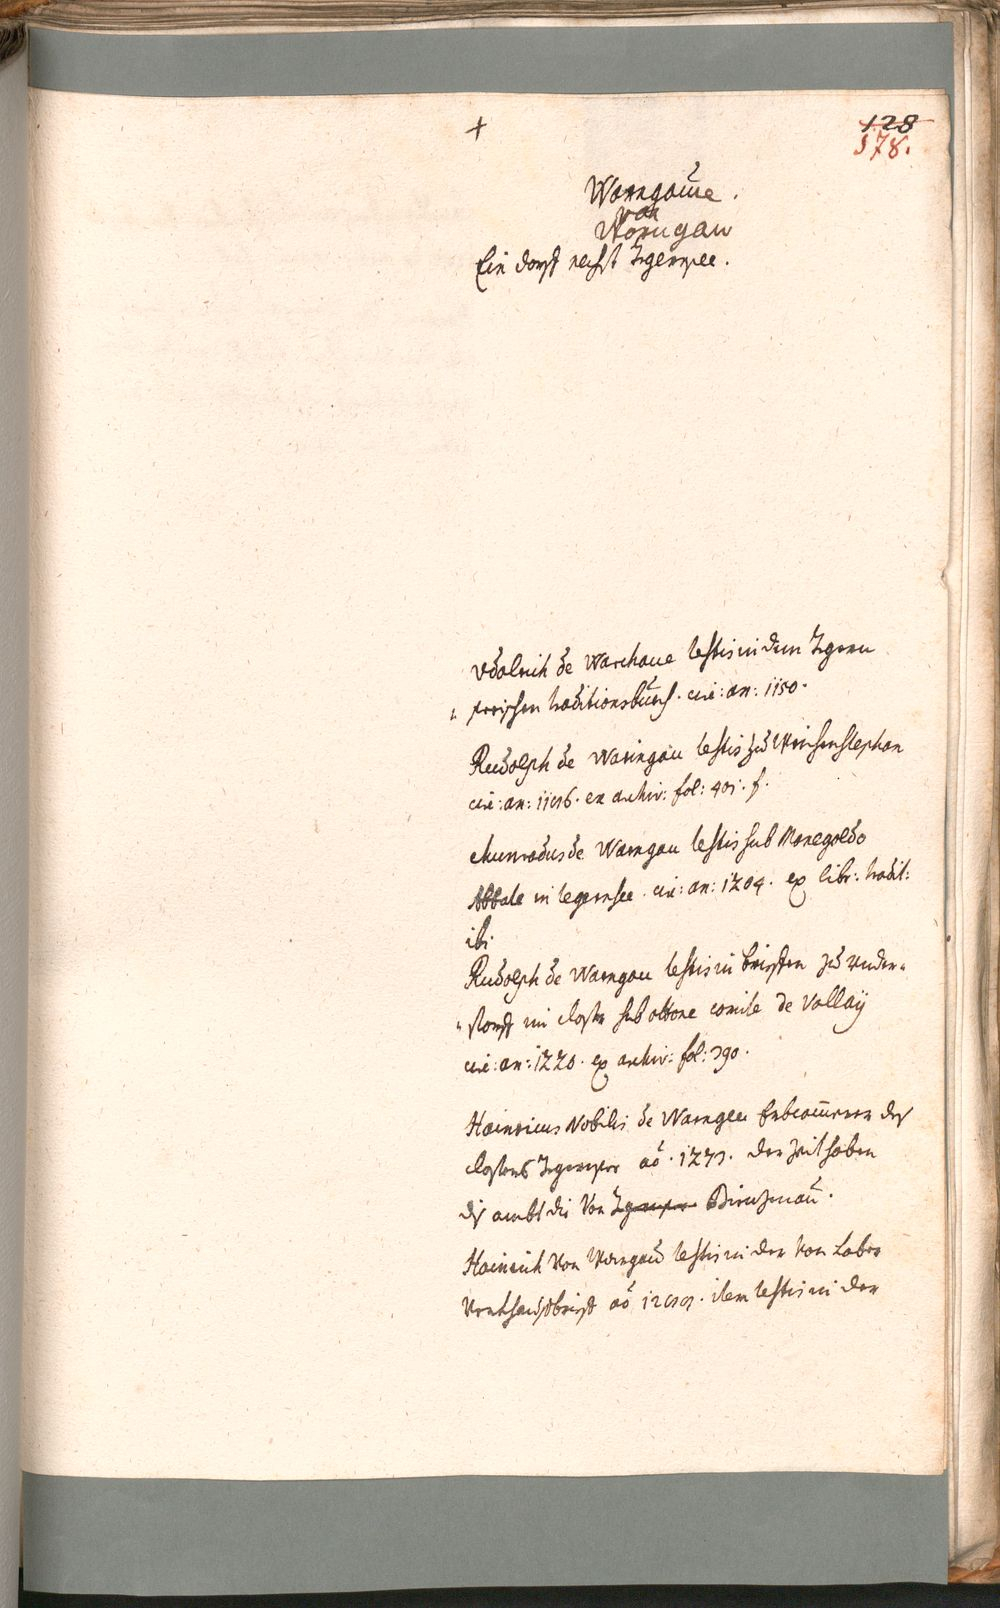 +
128
178.
Warngaůe.
von
Worngau
Ein dorff nechst Tegernsee.
Vdalrich de Warchoue testis in dem Tegern
seeischen traditionsbůech. circ: an: 1150.
Rudolph de Waringau testis zu Weihenstephan
circ: an: 1196. ex archiv: fol: 401. f.
Chunradus de Warngau testis sub Manegoldo
Abbate in tegernsee. circ: an: 1204. ex libr: tradit:
ibi
Rudolph de Warngau testis in brieffen zu vnder-
storff im closter sub ottone comite de Vallaÿ
circ: an: 1220. ex archiv: fol: 390.
Hainricus Nobilis de Warngau Erbcam̄erer des
closters Tegernsee aō. 1273. der zeit haben
diß ambt die Von Tegernsee Pienzenaů.
Hainrich Von Warngau testis in der Von Laber
Verkhaufsbrief aō 1299. item testis in der